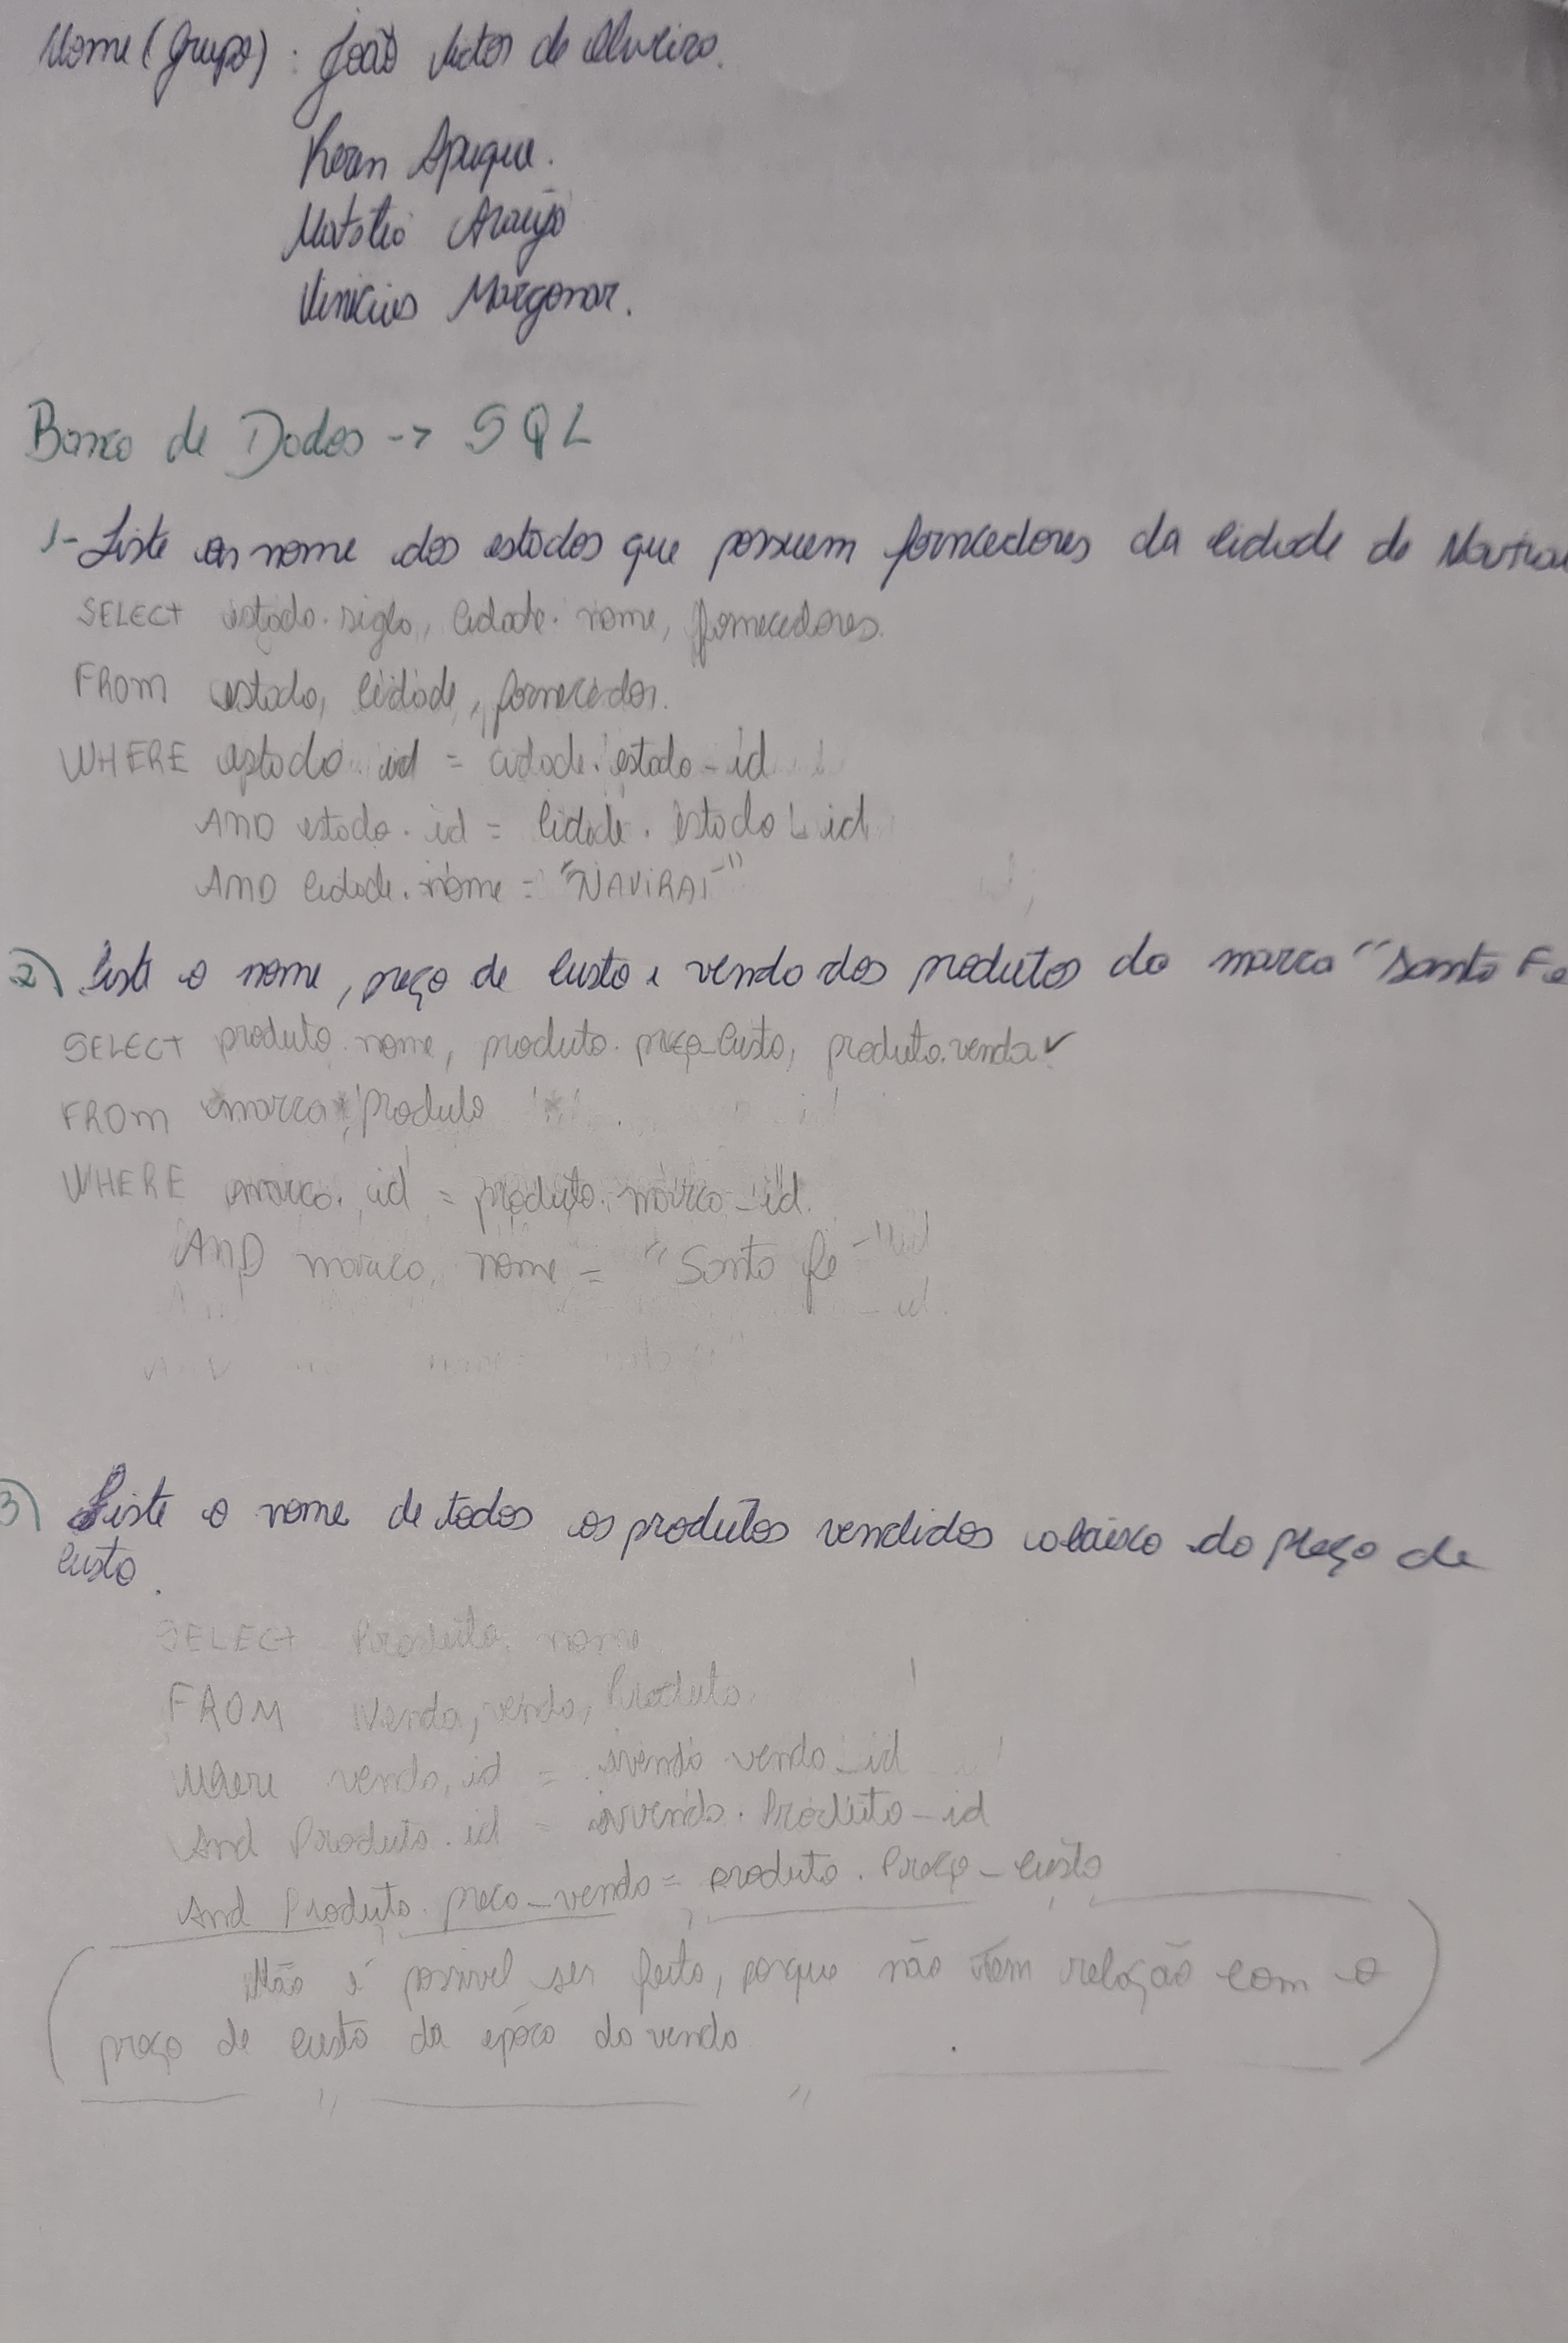 Nome (Grupo): João Victor de Oliveira.
Keven Apuque.
Natália Araujo
Vinicius Margonar.
Banco de Dados -> SQL
1- Liste os nome dos estados que possuem fornecedores da cidade de Navirai
SELECT estado.sigla, cidade.nome, fornecedores.
FROM estado, cidade, fornecedor.
WHERE estado.id = cidade.estado_id
AND estado.id = cidade.estado_id
AND cidade.nome = "NAVIRAI"
2) Liste o nome, preço de custo e venda dos produtos da marca "Santa Fe
SELECT produto.nome, produto.preço_custo, produto.venda
FROM marca, produto
WHERE marca.id = produto.marca_id.
AND marca.nome = "Santa fe"
3) Liste o nome de todos os produtos vendidos abaixo do preço de
custo.
SELECT Produto.nome
FROM venda, Produto
Where venda.id = ivenda venda_id
And Produto.id = ivenda.Produto_id
And Produto.preco_venda = produto.Preço_custo
Não é possivel ser feito, porque não tem relação com o
preço de custo da epoca da venda